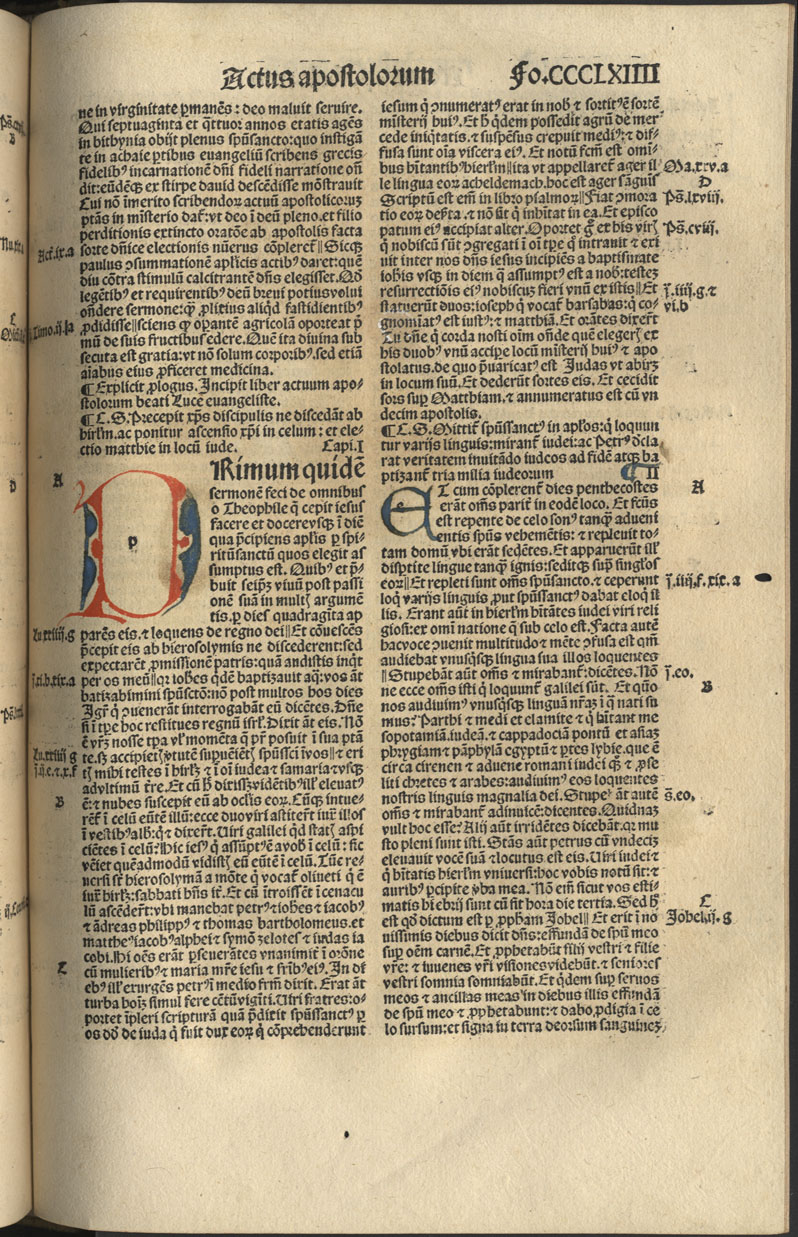 Actus apostolorum Fo.CCCLXIIII
ne in virginitate ꝑmanēs: deo maluit seruire.
Qui septuaginta et q̄ttuor annos etatis agēs
in bithynia obijt plenus spūsancto: quo instigā
te in achaie ꝑtibus euangeliū scribens grecis
fidelibꝰ incarnationē dn̄i fideli narratione on̄
dit: eūdēqꝫ ex stirpe dauid descēdisse mōstrauit
Cui nō īmerito scribendoꝝ actuū apostolicoruꝫ
ptās in mīsterio dat᷑: vt deo ī deū pleno. et filio
perditionis extincto oratōe ab apostolis facta
sorte dn̄ice electionis nūerus cōpleret᷑ ‖ Sicqꝫ
paulus ↄsummationē aplīcis actibꝰ daret: quē
diu cōtra stimulū calcitrantē dn̄s elegisset. Qd̄
legētibꝰ et requirentibꝰ deū breui potius volui
on̄dere sermone: qꝫ ꝓlixius aliqd̄ fastidientibꝰ
ꝓdidisse ‖ sciens qꝫ oꝑantē agricolā oporteat p̄
mū de suis fructibus edere. Quē ita diuina sub
secuta est gratia: vt nō solum corporibꝰ. sed etiā
aīabus eius ꝓficeret medicina.
¶ Explicit ꝓlogus. Incipit liber actuum apo-
stolorum beati Luce euangeliste.
¶ C.S. Precepit xp̄s discipulis ne discedāt ab
hirl̄m. ac ponitur ascensio xp̄i in celum: et ele-
ctio matthie in locū iude. Capi.I
PRimum quidē
sermonē feci de omnibus
o Theophile q̄ cepit iesus
facere et docere vsqꝫ ī diē
qua p̄cipiens apl̄is ꝑ spi-
ritūsanctū quos elegit as
sumptus est. Quibꝰ et p̄-
buit seip̄ꝫ viuū post passi
onē suā in multꝭ argumē
tis. ꝑ dies quadragita ap
parēs eis. ⁊ loquens de regno dei ‖ Et cōuescēs
p̄cepit eis ab hierosolymis ne discederent: sed
expectarēt ꝓmissionē patris: quā audistis inq̄t
per os meū ‖ qꝛ iohēs q̄dē baptizauit aq̄: vos āt
batizabimini spūsctō: nō post multos hos dies
Igr̄ q̄ ↄuenerāt interrogabāt eū dicētes. Dn̄e
si ī tꝑe hoc restitues regnū isrl̄. Dixit āt eis. Nō
ē vr̄ꝫ nosse tpa vl̓ momēta q̄ pr̄ posuit ī sua ptā
te. sꝫ accipietꝭ v̓tutē supueniētꝭ spūssci ī vos ‖ ⁊ eri
tꝭ mihi testes ī hirl̄ꝫ ⁊ ī oī iudea ⁊ samaria ⁊ vsqꝫ
ad vltimū tr̄e. Et cū h̄ dixissꝫ vidētibꝰ ill̓ eleuatꝰ
ē: ⁊ nubes suscepit eū ab ocl̓is eoꝝ. Cūqꝫ intue-
rēt᷑ ī celū eūtē illū: ecce duo viri astiterūt iux̄ illos
ī vestibꝰ alb̓: q̄ ⁊ dixerūt. Uiri galilei qd̄ statꝭ aspi
ciētes ī celū? Hic iesꝰ q̄ assūptꝰ ē a vob̓ ī celū: sic
vēiet quēadmodū vidistꝭ eū eūtē ī celū. Tūc re-
uersi sūt hierosolymā a mōte q̄ vocat᷑ oliueti q̄ ē
iux̄ hirl̄ꝫ: sabbati hn̄s it̄. Et cū ītroissēt ī cenacu
lū ascēderūt: vbi manebāt petrꝰ ⁊ iohēs ⁊ iacobꝰ
⁊ ādreas philippꝰ ⁊ thomas bartholomeus. et
mattheꝰ iacobꝰ alphei ⁊ symō zelotes ⁊ iudas ia
cobi. Hi oēs erāt ꝑseuerātes vnanimit̓ ī orōne
cū mulieribꝰ ⁊ maria mr̄e iesu ⁊ fr̄ibꝰ eiꝰ. In di
ebꝰ ill̓ exurgēs petrꝰ ī medio frm̄ dixit. Erat āt
turba hoīꝫ simul fere cētūvigīti. Uiri fratres: o-
portet īpleri scripturā quā p̄dixit spūssanctꝰ ꝑ
os dd̓ de iuda q̄ fuit dux eoꝝ q̄ cōprehenderunt
iesum q̄ ↄnumeratꝰ erat in nob̓ ⁊ sortitꝰ ē sortē
mīsterij huiꝰ. Et h̄ q̄dem possedit agrū de mer
cede iniq̄tatis. ⁊ suspēsus crepuit mediꝰ: ⁊ dif-
fusa sunt oīa viscera eiꝰ. Et notū fcm̄ est omi-
bus hītantibꝰ hierl̄m ‖ ita vt appellaret᷑ ager il̓
le lingua eoꝝ acheldemach. hoc est ager sāguīs
Scriptū est em̄ in libro psalmoꝝ ‖ Fiat ↄmora
tio eoꝝ deserta. ⁊ nō sit q̄ inhītat in ea. Et episco
patum eiꝰ accipiat alter. Oportet g̊ ex his virꝭ
q̄ nobiscū sūt ↄgregati ī oī tꝑe q̄ intrauit ⁊ exi
uit inter nos dn̄s iesus incipiēs a baptismate
iohīs vsqꝫ in diem q̄ assumptꝰ est a nob̓: testeꝫ
resurrectiōis eiꝰ nobiscuꝫ fieri vnū ex istis ‖ Et
statuerūt duos: ioseph q̄ vocat᷑ barsabas: q̄ co-
gnomīatꝰ est iustꝰ: ⁊ matthiā. Et orātes dixerūt
Tu dn̄e q̄ corda nosti oīm onde quē elegerꝭ ex
his duobꝰ vnū accipe locū mīsterij huiꝰ ⁊ apo
stolatus. de quo p̄uaricatꝰ est Judas vt abiret
in locum suū. Et dederūt sortes eis. Et cecidit
sors sup Matthiam. ⁊ annumeratus est cū vn
decim apostolis.
¶ C.S. Mittit᷑ spūssanctꝰ in apl̓os: q̄ loquun
tur varijs linguis: mirant᷑ iudei: ac Petrꝰ dcla
rat veritatem inuitādo iudeos ad fidē atqꝫ ba
ptizant᷑ tria milia iudeorum ¶ II
ET cum cōplerent᷑ dies penthecostes
erāt om̄s parit̓ in eodē loco. Et fcūs
est repente de celo sonꝰ tanqꝫ adueni
entis spūs vehemētis: ⁊ repleuit to-
tam domū vbi erāt sedētes. Et apparuerūt ill̓
disꝑtite lingue tanqꝫ ignis: seditqꝫ suꝑ singl̓os
eoꝝ ‖ Et repleti sunt om̄s spūsancto. ⁊ ceperunt
loq̄ varijs linguis, put spūssanctꝰ dabat eloq̄ il
lis. Erant aūt in hierl̄m hītātes iudei viri reli
giosi: ex omī natione q̄ sub celo est. Facta autē
hac voce ↄuenit multitudo ⁊ mēte ↄfusa est qm̄
audiebat vnusq̄sqꝫ lingua sua illos loquentes
‖ Stupebāt aūt om̄s ⁊ mirabant᷑: dicētes. Nō
ne ecce om̄s isti q̄ loquunt᷑ galilei sūt. Et quō
nos audiuimꝰ vnusq̄sqꝫ linguā nr̄aꝫ ī q̄ nati su
mus? Parthi ⁊ medi et elamite ⁊ q̄ hītant me
sopotamiā. iudeā. ⁊ cappadociā pontū et asiaꝫ
phrygiam ⁊ pāphylā egyptū ⁊ ꝑtes lybie. que ē
circa cirenen ⁊ aduene romani iudei qꝫ ⁊ ꝓse
liti chretes ⁊ arabes: audiuimꝰ eos loquentes
nostris linguis magnalia dei. Stupebāt autē
om̄s ⁊ mirabant᷑ adinuicē: dicentes. Quidnaꝫ
vult hoc esse? Alij aūt irridētes dicebāt. qꝛ mu
sto pleni sunt isti. Stās aūt petrus cū vndeciꝫ
eleuauit vocē suā ⁊ locutus est eis. Uiri iudei ⁊
q̄ hītatis hierl̄m vniuersi: hoc vobis notū sit: ⁊
auribꝰ ꝑcipite v̓ba mea. Nō em̄ sicut vos esti-
matis hi ebrij sunt cū sit hora die tertia. Sed h̄
est qd̄ dictum est ꝑ ꝓpham Johel ‖ Et erit ī no
uissimis diebus dicit dn̄s: effundā de spū meo
suꝑ oēm carnē. Et ꝓphetabūt filij vestri ⁊ filie
vr̄e: ⁊ iuuenes vr̄i visiones videbūt. ⁊ seniores
vestri somnia somniabūt. Et q̄dem suꝑ seruos
meos ⁊ ancillas meas in diebus illis effundā
de spū meo ⁊ ꝓphetabunt: ⁊ dabo ꝓdigia ī ce
lo sursum: et signa in terra deorsum sanguineꝫ
Act.ix.a
i.Timo.ij.b
A
p
Lu.xxiiij.g
j.xi.b.xix.a
Lu.xxiiij g
j.ij.e.⁊.x.f
B
C
Ma.xxv.a
D
Ps̄.lxviij.
Ps̄.cviij.
j.iiij.g.⁊
vi.b
A
j.iiij.f.xix.a
j.eo.
B
s̄.eo.
C
Johel.ij.g